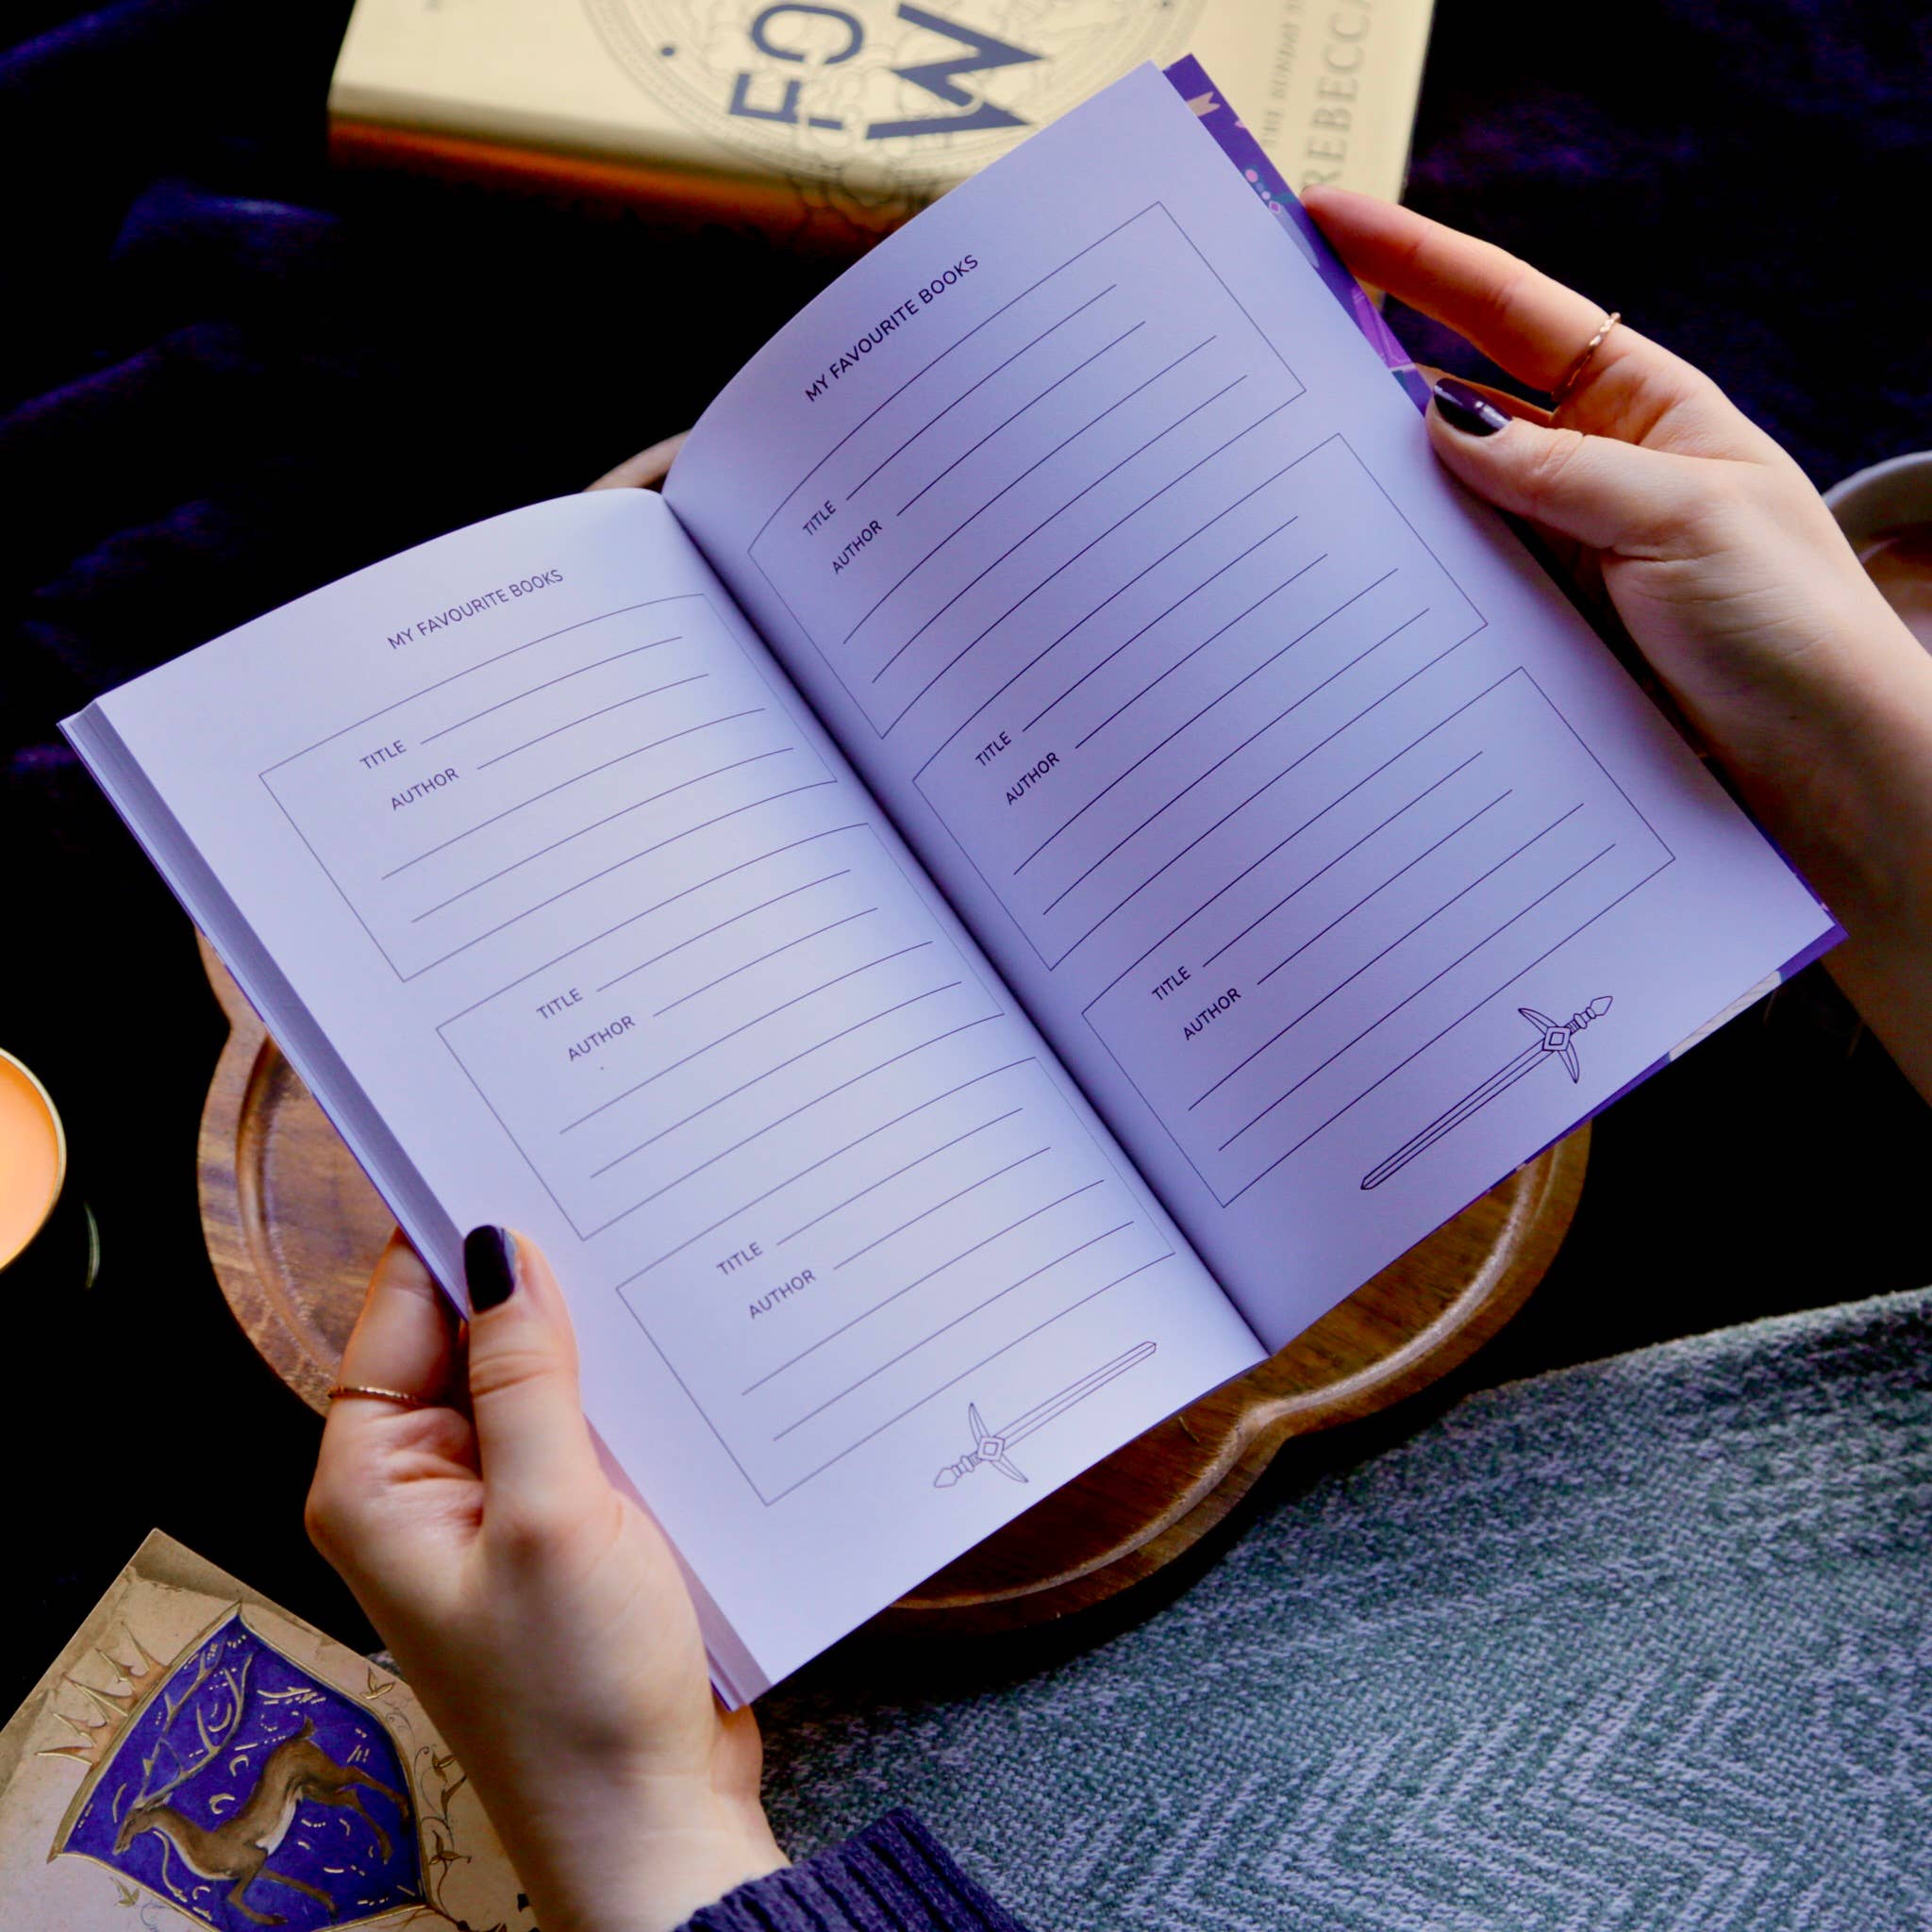 MY FAVOURITE BOOKS
TITLE
AUTHOR
TITLE
AUTHOR
TITLE
AUTHOR
MY FAVOURITE BOOKS
TITLE
AUTHOR
TITLE
AUTHOR
TITLE
AUTHOR
REBECCA